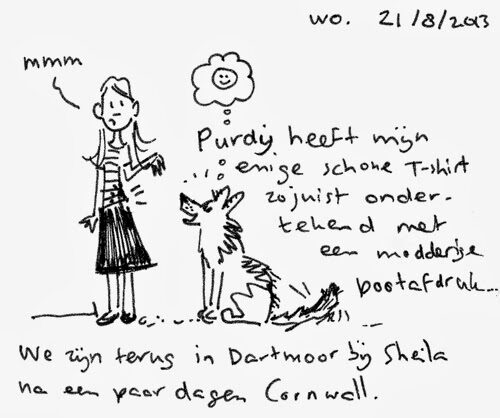 wo. 21/8/2013
mmm
Purdy heeft mijn
enige schone T-shirt
zojuist onder-
tekend met
een modderige
pootafdruk...
We zijn terug in Dartmoor bij Sheila
na een paar dagen Cornwall.